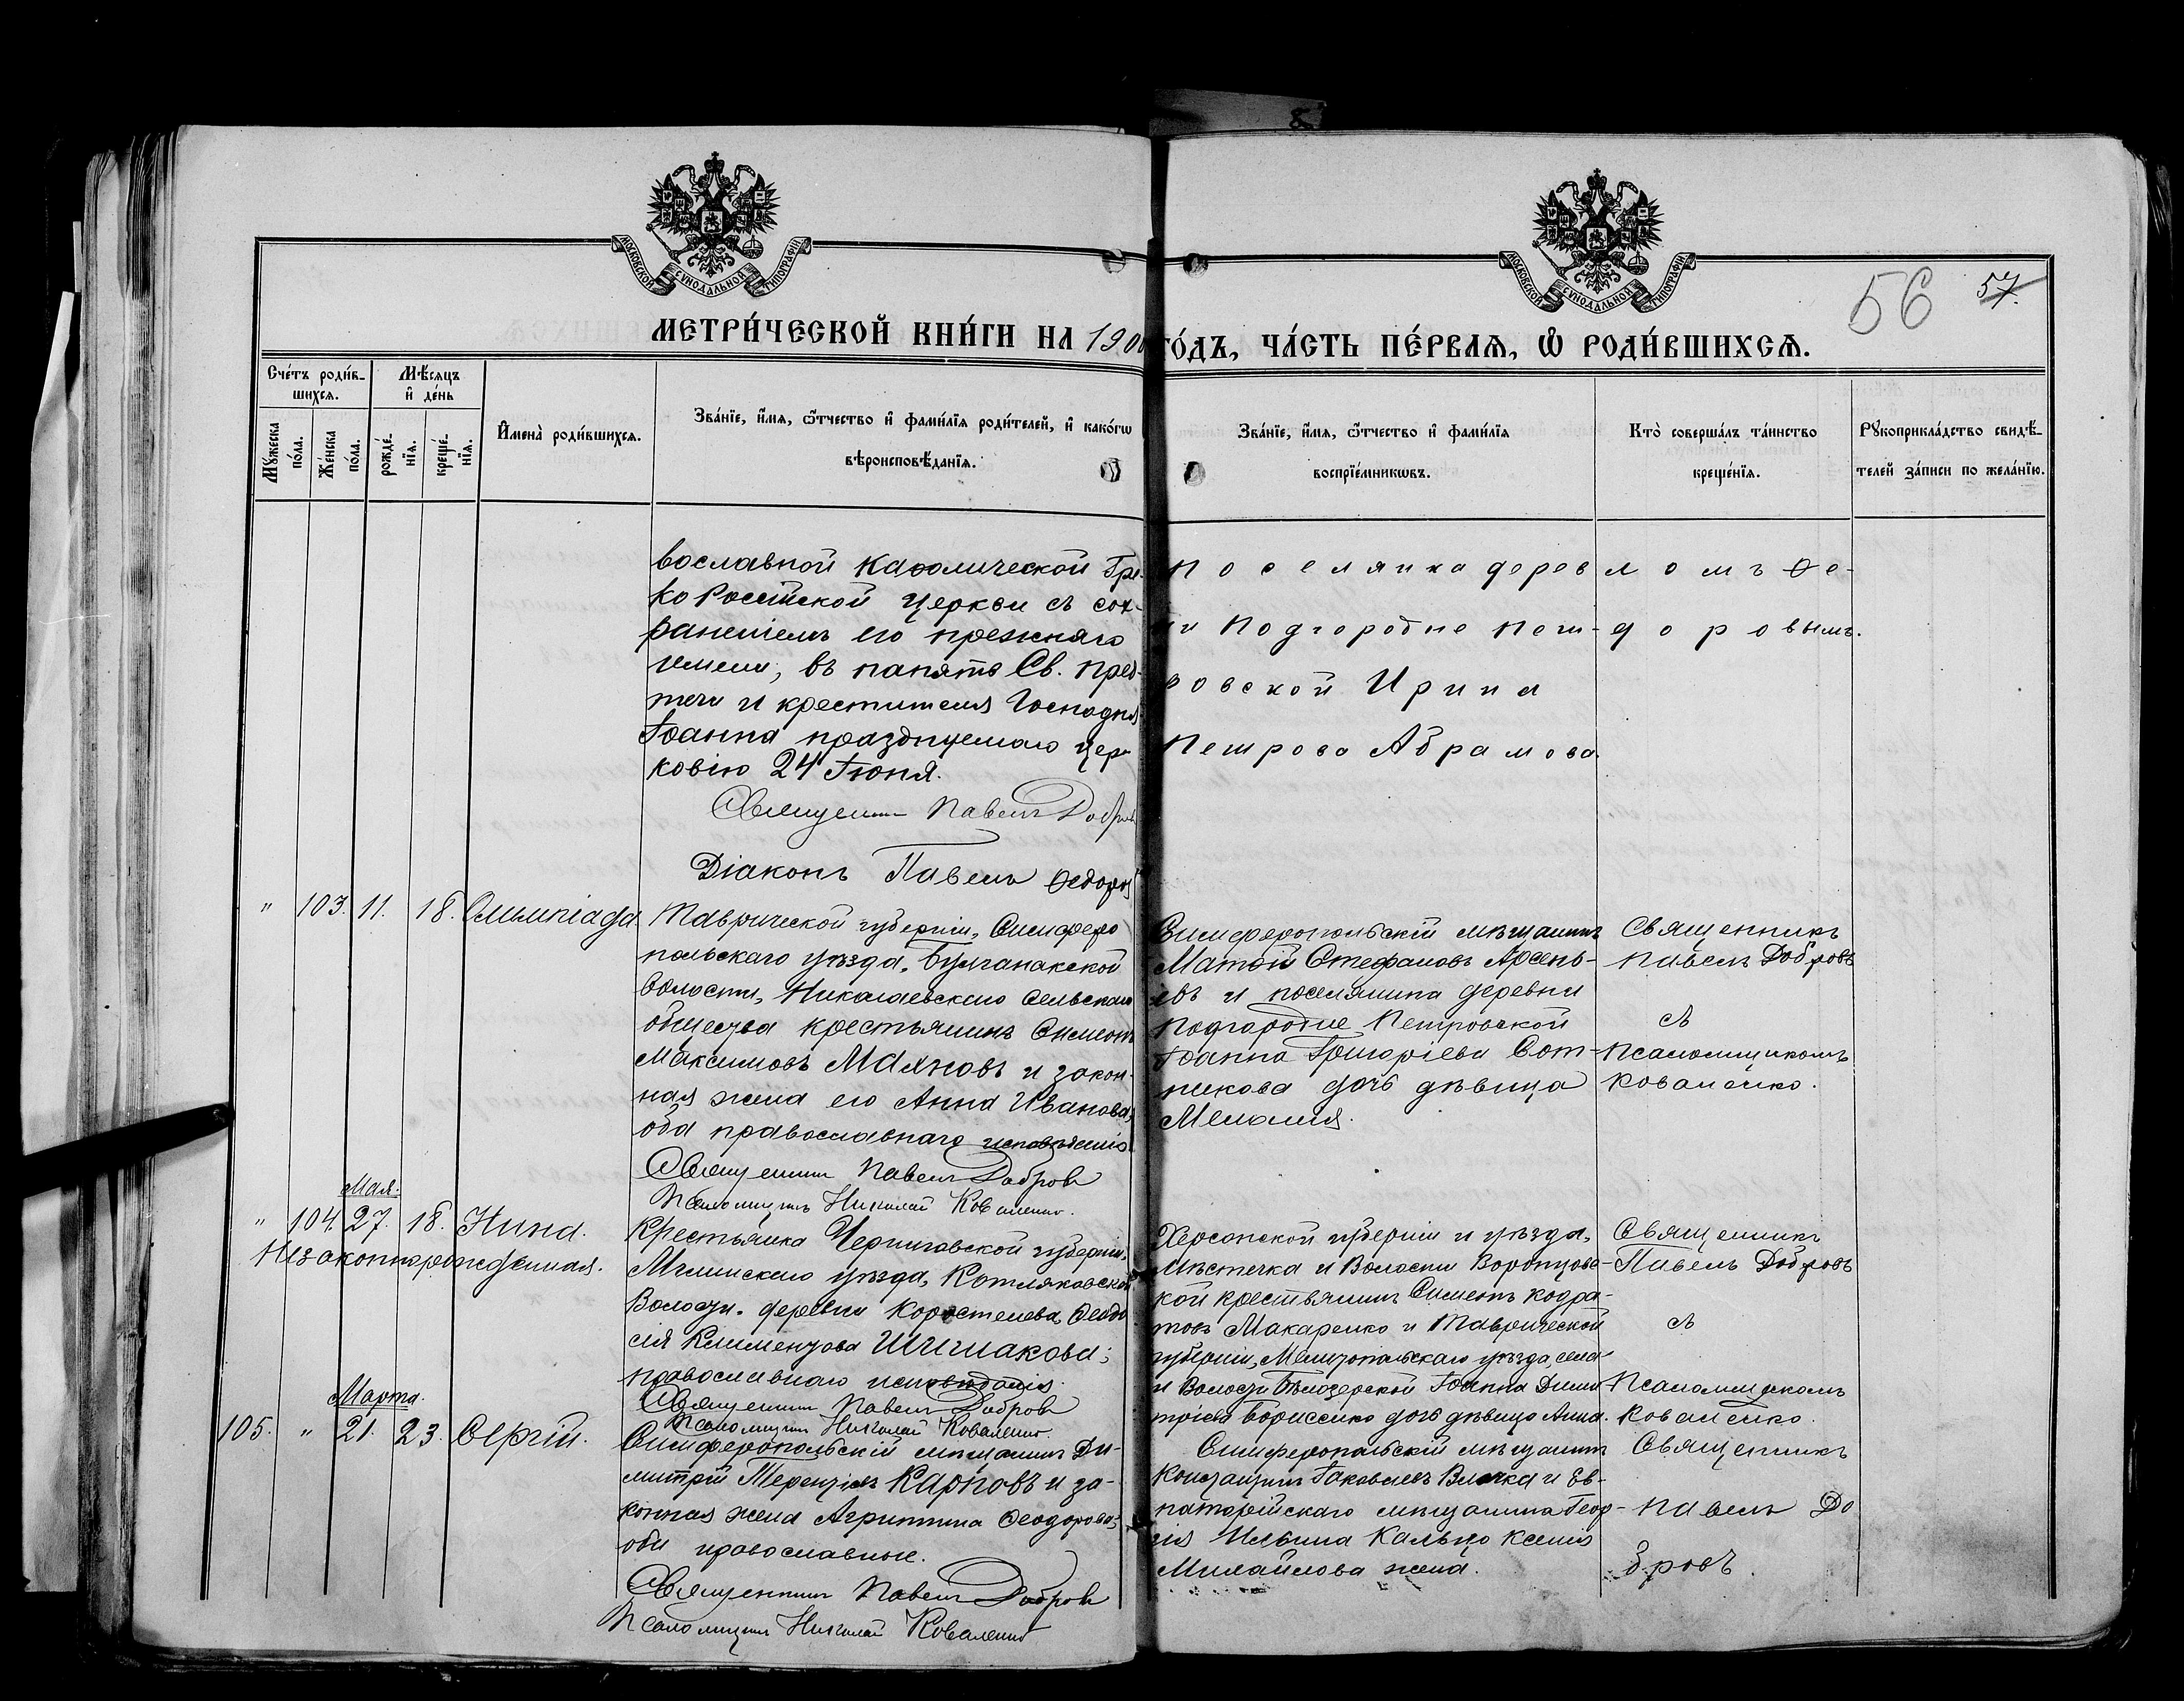 МОСКОВСКОЙ СѴНОДАЛЬНОЙ ТИПОГРАФІИ
МОСКОВСКОЙ СѴНОДАЛЬНОЙ ТИПОГРАФІИ
56 57.
МЕТРИ́ЧЕСКОЙ КНИ́ГИ НА 190 ГО́ДЪ, ЧА́СТЬ ПЕ́РВАѦ, Ѡ РОДИ́ВШИХСѦ.
Сче́тъ роди́в-
шихсѧ.
Мꙋ́жеска по́ла.
Же́нска по́ла.
Мѣ́сѧцъ и де́нь
рожде́-нїѧ.
креще́-нїѧ.
И҆мена̀ роди́вшихсѧ.
Зва́нїе, и҆́мѧ, ѻ҆́тчество и҆ фами́лїѧ роди́телей, и҆ како́гѡ
вѣроисповѣ́данїѧ.
Зва́нїе, и҆́мѧ, ѻ҆́тчество и҆ фами́лїѧ
воспрїе́мникѡвъ.
Кто̀ соверша́лъ та́инство
креще́нїѧ.
Рꙋкоприкла́дство свидѣ́-
телей за́писи по жела́нїю.
вославной Каѳолической Гре-
ко Россійской церкви съ сох-
раненіемъ его прежняго
имени, въ память Св. Пред-
течи и крестителя Господня
Іоанна празднуемаго цер-
ковію 24 Іюня.
Священникъ Павелъ Добровъ
Діаконъ Павелъ Ѳедоровъ
поселянка дерев
ни Подгородне Пет-
ровской Ирина
Петрова Абрамова.
ломъ Ѳе-
доровымъ.
" 103. 11. 18. Олимпіада.
Таврической губерніи, Симферо
польскаго уѣзда, Булганакской
волости, Николаевскаго сельскаго
общества крестьянинъ Симеонъ
Максимовъ Маяновъ и закон-
ная жена его Анна Иванова,
оба православнаго исповѣданія.
Священникъ Павелъ Добровъ
Псаломщикъ Николай Коваленко.
Симферопольскій мѣщанинъ
Матѳій Стефановъ Арсень-
евъ и поселянина деревни
Подгородне Петровской
Іоанна Григоріева Сот-
никова дочь дѣвица
Меланія.
Священникъ
Павелъ Добровъ
съ
Псаломщикомъ
Коваленко.
Мая.
" 104. 27. 18. Нина.
Незаконнорожденная.
Крестьянка Черниговской губерніи,
Мглинскаго уѣзда, Котляковской
Волости. деревни Коростелева, Ѳеодо
сія Климентова Шишакова;
православнаго исповѣданія.
Священникъ Павелъ Добровъ
Псаломщикъ Николай Коваленко.
Херсонской губерніи и уѣзда,
Мѣстечка и Волости Воронцовс-
кой крестьянинъ Симеонъ Кодра-
товъ Макаренко и Таврической
губерніи, Мелитопольскаго уѣзда, села
и Волости Бѣлозерской Іоанна Дими
тріева Борисенко дочь дѣвица Анна.
Священникъ
Павелъ Добровъ
съ
Псаломщикомъ
Коваленко.
Марта.
105. " 21. 23. Сергій.
Симферопольскій мѣщанинъ Ди-
митрій Терентіевъ Карповъ и за-
конная жена Агриппина Ѳеодорова;
оба православные.
Священникъ Павелъ Добровъ
Псаломщикъ Николай Коваленко
Симферопольскій мѣщанинъ
Константинъ Іаковлевъ и Ев-
паторійскаго мѣщанина Геор-
гія Ильина Кальцо Ксенія
Михайлова жена.
Священникъ
Павелъ До
бровъ.